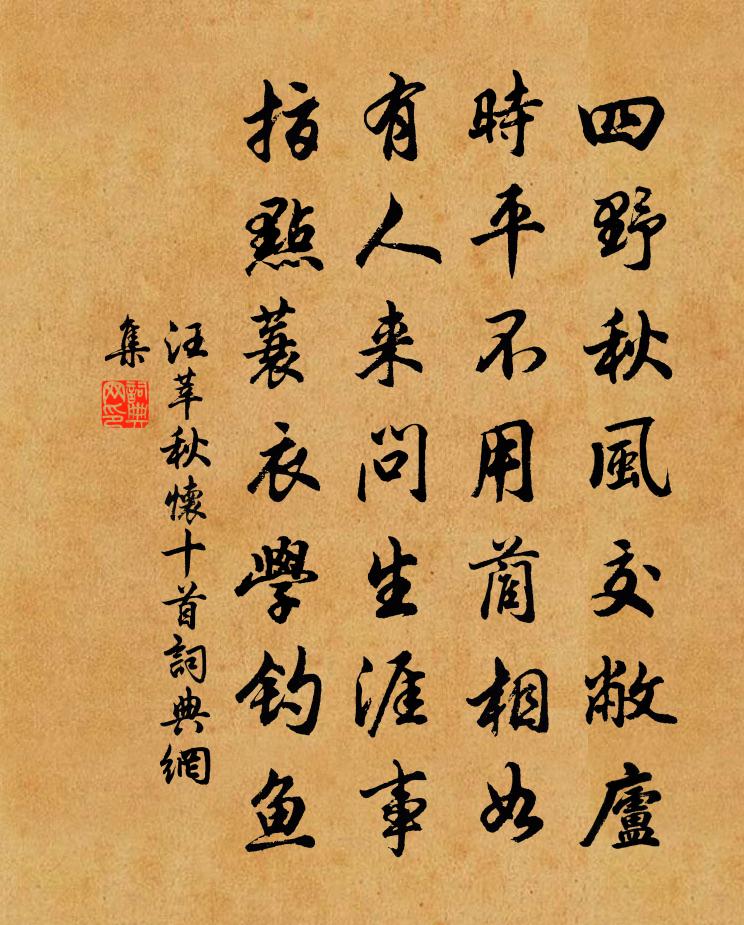 四野秋風交敝廬
時平不用藺相如
有人来問生涯事
指點蓑衣學釣魚
汪莘秋懷十首詞典網
集
詞典
网印